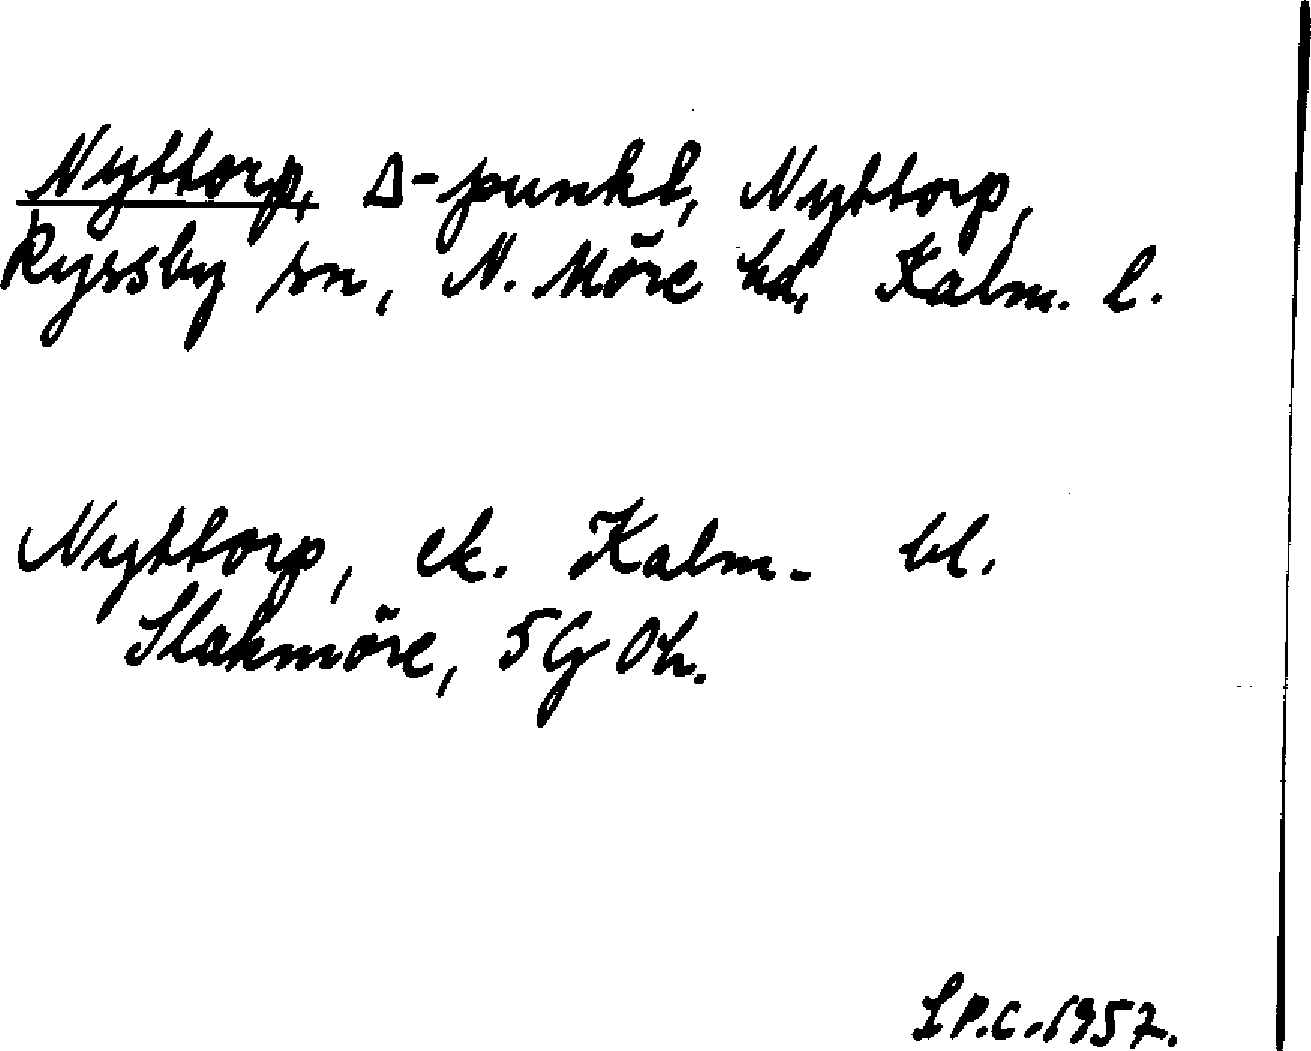 Nyttorp, Δ-punkt, Nyttorp,
Ryssby sn, N. Möre hd, Kalm. l.
Nyttorp, ek. Kalm. bl.
Slakmöre, 5G Oh.
L P.C. 1957.